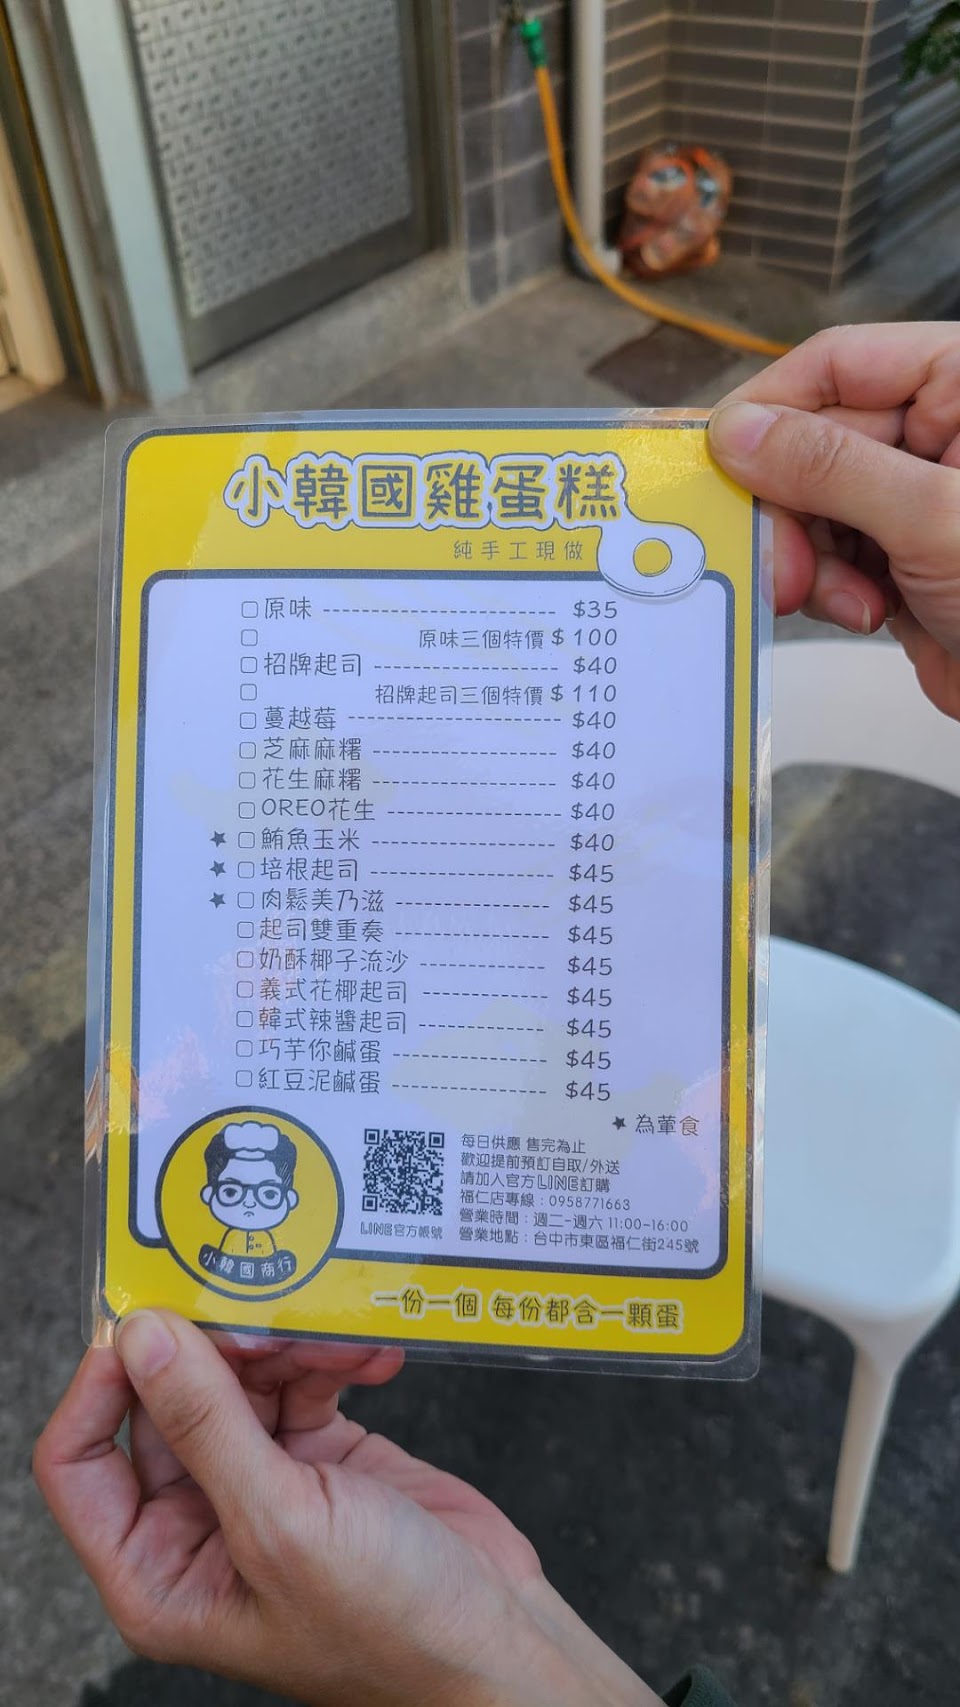 小韓國雞蛋糕
純手工現做
原味 $35
原味三個特價 $100
招牌起司 $40
招牌起司三個特價 $110
蔓越莓 $40
芝麻麻糬 $40
花生麻糬 $40
OREO花生 $40
★ 鮪魚玉米 $40
★ 培根起司 $45
★ 肉鬆美乃滋 $45
起司雙重奏 $45
奶酥椰子流沙 $45
義式花椰起司 $45
韓式辣醬起司 $45
巧芋你鹹蛋 $45
紅豆泥鹹蛋 $45
★ 為葷食
每日供應 售完為止
歡迎提前預訂自取/外送
請加入官方LINE訂購
福仁店專線：0958771663
營業時間：週二-週六 11:00-16:00
營業地點：台中市東區福仁街245號
LINE官方帳號
小韓國商行
一份一個 每份都含一顆蛋